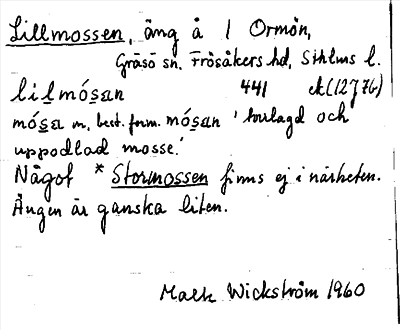 Lillmossen, äng å l Ormön,
Gräsö sn. Frösåkers hd, Sthlms l.
lilmósan 441 ek(12J76)
mósa m, best. form. mósan 'torlagd och
uppodlad mosse.'
Något * Stormossen finns ej i närheten.
Ängen är ganska liten.
Wickström 1960